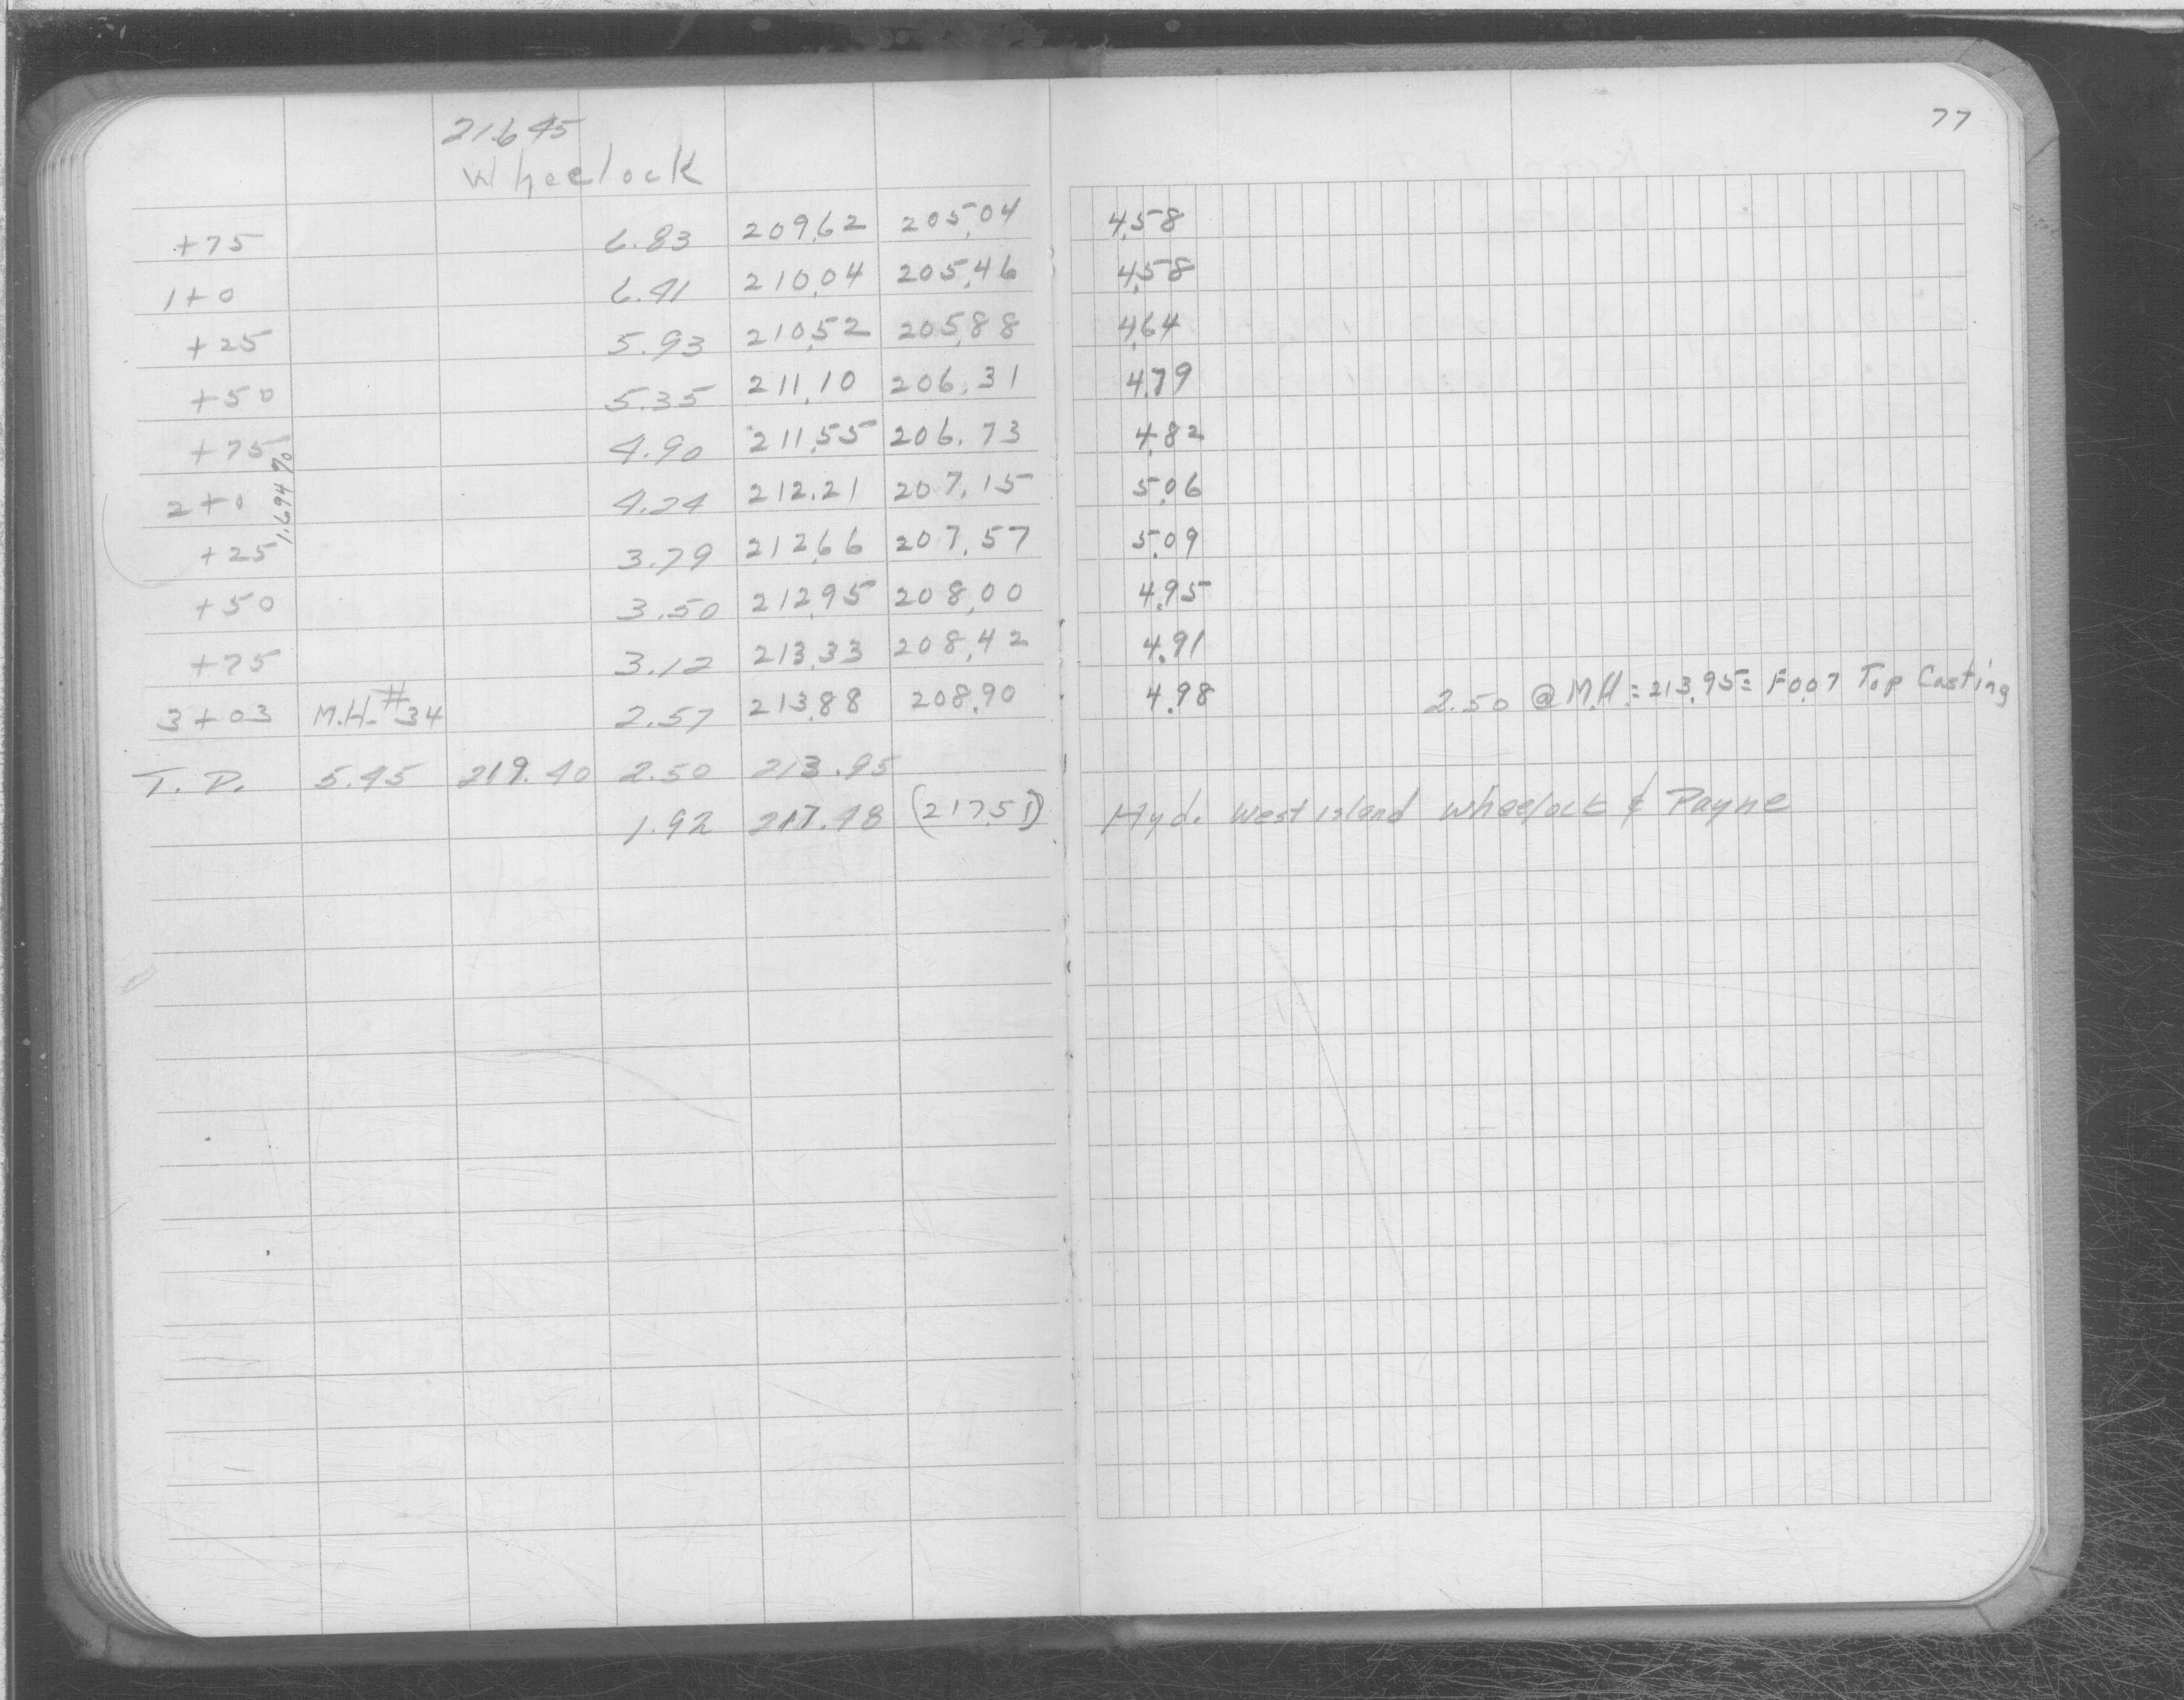 77
216.45
Wheelock
+75 6.83 209.62 205.04 4.58
1+0 6.41 210.04 205.46 4.58
+25 5.93 210.52 205.88 4.64
+50 5.35 211.10 206.31 4.79
+75 4.90 211.55 206.73 4.82
2+0 4.24 212.21 207.15 5.06
1.694 %
+25 3.79 212.66 207.57 5.09
+50 3.50 212.95 208.00 4.95
+75 3.12 213.33 208.42 4.91
3+03 M.H. #34 2.57 213.88 208.90 4.98 2.50 @ M.H. = 213.95 = F0.07 Top Casting
T.P. 5.45 219.40 2.50 213.95
1.92 217.48 (217.51) Hyd. West island Wheelock & Payne